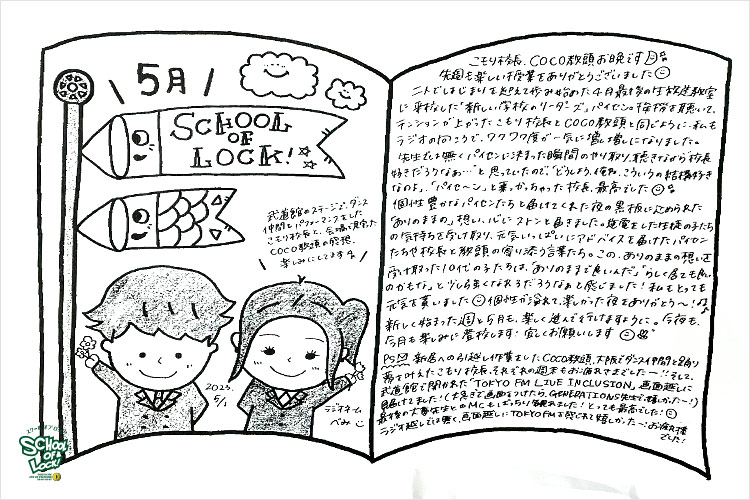 5月
SCHOOL
OF
LOCK!
武道館のステージで、ダンス
仲間とパフォーマンスをした
こもり校長と、会場で見守った
COCO教頭の感想、
楽しみにしてます
2023.
5/1
ラジオネーム
べみこ
スクールオブロック
SCHOOL
OF
LOCK!
こもり校長、COCO教頭お晩です
先週も楽しい授業をありがとうございました
ニトではじまりを迎えて歩み始めた4月最後の生放送教室
に来校した"新しい学校のリーダーズ"パイセン。校権を聴いて、
テンションが上がったこもり校長とCOCO教頭と同じように、私も
ラジオの向こうで、ワクワク度が一気に増し増しになりました。
先生でも無くパイセンに決まった瞬間のやり取り、聴きながら校長
好きだろうなぁ…と思っていたので、「どうしよう、俺ね、こういうの結構好き
なのよ」「パイセ〜ン」と乗っかっちゃった校長、最高でした
個性豊かなパイセンたちと届けてくれた夜の黒板に込められた
「ありのまま」の想い、心にストンと届きました。逆電をした生徒の子たち
の気持ちを受け取り、元気いっぱいにアドバイスを届けたパイセン
たちや校長と教頭の寄り添う言葉たち。この、ありのままの想いを
受け取った10代の子たちは、「ありのままで良いんだ」「らしく居ても良い
のかもな」と少し強くなれるだろうなぁと感じました!私もとっても
元気を貰いました 個性が溢れて、楽しかった夜をありがとう〜!
新しく始まった週と5月も、楽しく進んで行けますように。今夜も、
今月も楽しみに登校します!宜しくお願いします
PS 新居への引越し作業をしたCOCO教頭、大阪でダンス仲間と全力で
踊ったこもり校長、それぞれの週末もお疲れさまでした!そして、
武道館で開かれた「TOKYO FM LIVE INCLUSION」画面越しに
見届けてました!(大きく画面をつけたら、GENERATIONS先生で嬉しかった〜!)
最後の大勢先生とのMCもばっちり観れました!とっても最高でした!
ラジオ越しでは無く、画面越しにTOKYO FMを感じれて嬉しかった〜!お疲れ様
でした!